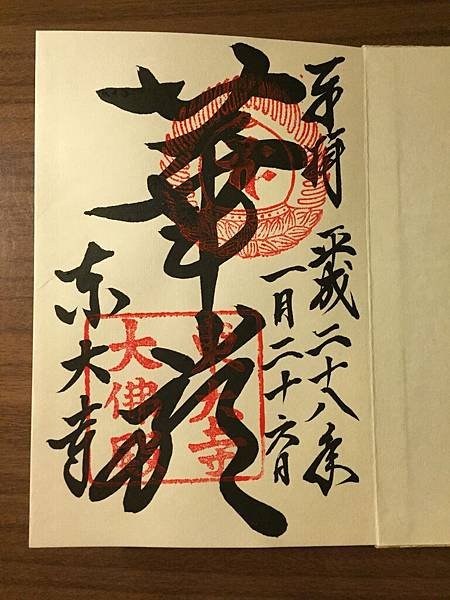 奉拝　平成二十八年
一月二十六日
華厳
東大寺
東大寺
大佛殿